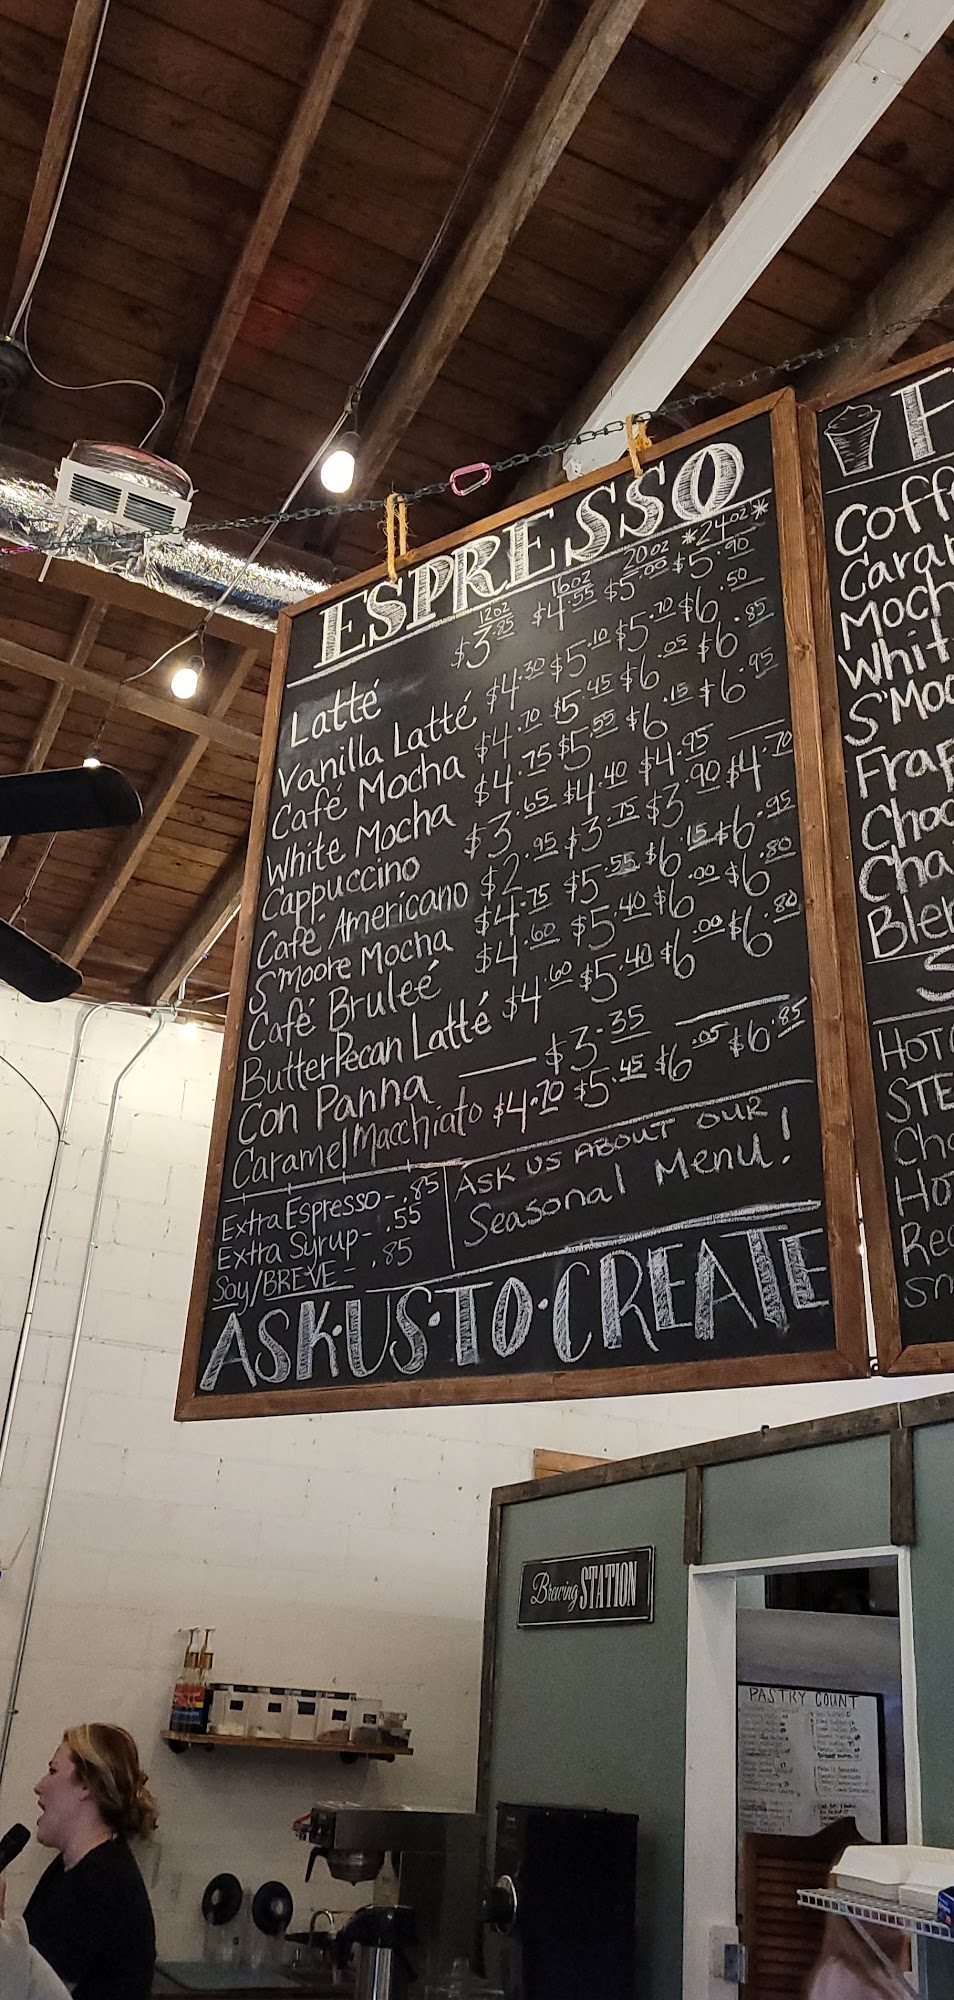 ESPRESSO
12oz 16oz 20oz *24oz*
Latté $3.85 $4.55 $5.00 $5.90
Vanilla Latté $4.30 $5.10 $5.70 $6.50
Café Mocha $4.70 $5.45 $6.05 $6.85
White Mocha $4.75 $5.55 $6.15 $6.95
Cappuccino $3.65 $4.40 $4.95
Café Americano $2.95 $3.75 $3.90 $4.70
S'moore Mocha $4.75 $5.55 $6.15 $6.95
Café Bruleé $4.60 $5.40 $6.00 $6.80
ButterPecan Latté $4.60 $5.40 $6.00 $6.80
Con Panna $3.35
Caramel Macchiato $4.70 $5.45 $6.05 $6.85
Extra Espresso - .85
Extra Syrup - .55
Soy/BREVE - .85
ASK US ABOUT OUR
Seasonal Menu!
ASK·US·TO·CREATE
F
Coff
Cara
Moch
Whit
S'Moo
Frap
Choc
Cha
Blen
S
HOT
STE
Cho
Ho
Re
Sm
Brewing STATION
PASTRY COUNT